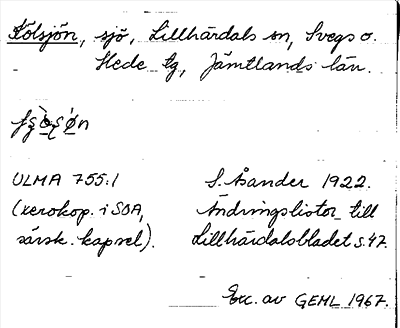 Kölsjön, sjö, Lillhärdals sn, Svegs o.
Hede tg, Jämtlands län.
ULMA 755:1 S. Åsander 1922.
(xerokop. i SOA, Ändringslistor till
särsk. kapsel). Lillhärdalsbladet s. 47.
Exc. av GEHL 1967.